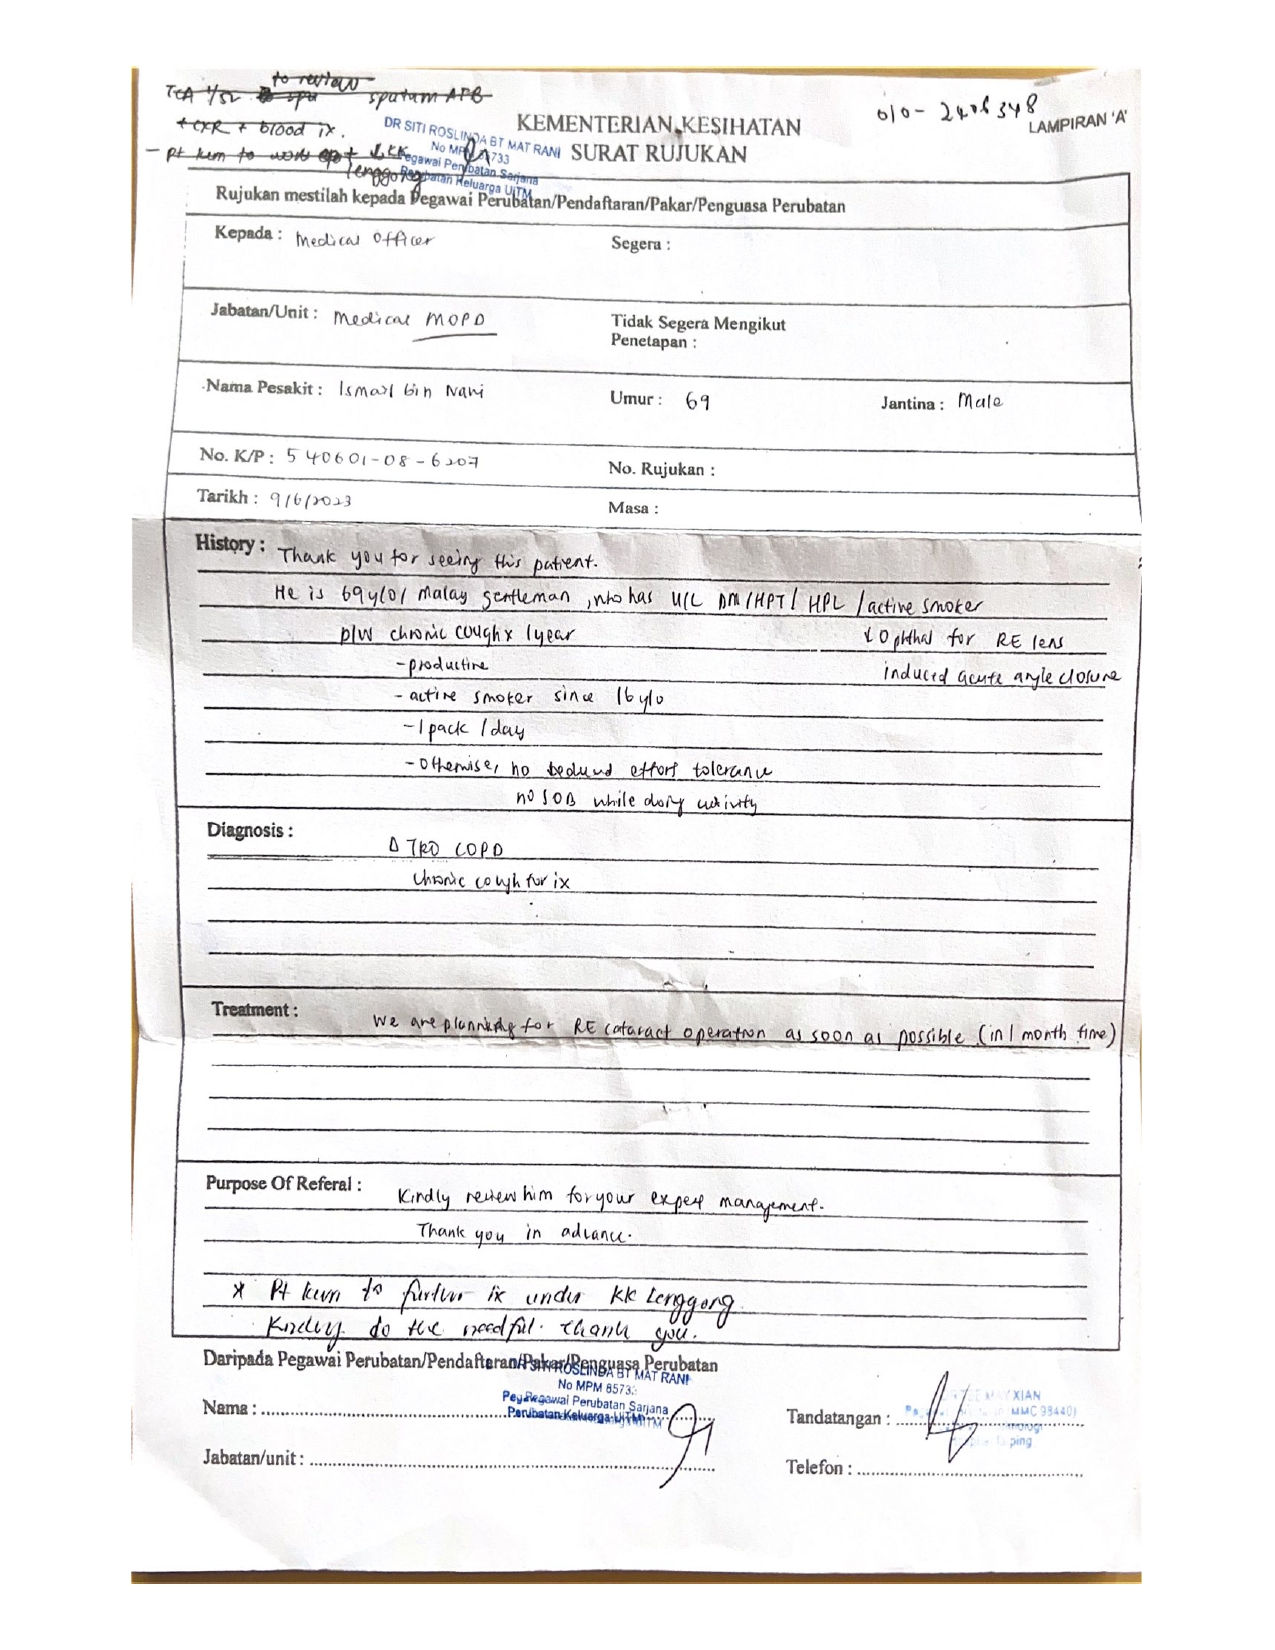 to review
TCA 1/52 spu sputum AFB
+ CXR + blood ix.
- pt keen to work up + KK
Lenggong
DR SITI ROSLINDA BT MAT RANI
No MPM 85733
Pegawai Perubatan Sarjana
Perubatan Keluarga UiTM
010-2406348
LAMPIRAN 'A'
KEMENTERIAN KESIHATAN
SURAT RUJUKAN
Rujukan mestilah kepada Pegawai Perubatan/Pendaftaran/Pakar/Penguasa Perubatan
Kepada : Medical Officer Segera :
Jabatan/Unit : Medical MOPD Tidak Segera Mengikut
Penetapan :
Nama Pesakit : Ismail bin Nani Umur : 69 Jantina : Male
No. K/P : 540601-08-6207 No. Rujukan :
Tarikh : 9/6/2023 Masa :
History : Thank you for seeing this patient.
He is 69y/o/ Malay gentleman , who has U/L DM/HPT/ HPL /active smoker
p/w chronic cough x 1year
↓ Ophthal for RE lens
- productive
induced acute angle closure
- active smoker since 16y/o
- 1 pack / day
- Otherwise, no reduced effort tolerance
no SOB while doing activity
Diagnosis :
Δ TRO COPD
Chronic cough for ix
Treatment :
We are planning for RE cataract operation as soon as possible (in 1 month time)
Purpose Of Referal :
Kindly review him for your expert management.
Thank you in advance.
* Pt keen to further ix under KK Lenggong
Kindly do the needful. Thank you.
Daripada Pegawai Perubatan/Pendaftaran/Pakar/Penguasa Perubatan
ROSLINDA BT MAT RANI
No MPM 85733
Pegawai Perubatan Sarjana
Perubatan Keluarga UiTM
Nama :
XIAN
MMC 98440)
ping
Tandatangan :
Jabatan/unit :
Telefon :